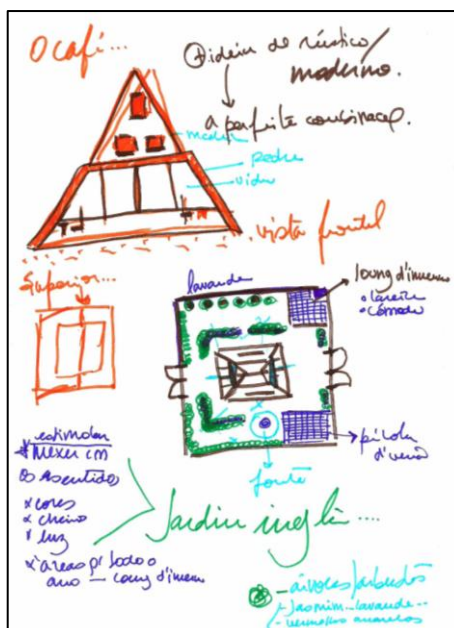 O café...
⊕ ideia de rústico/
moderno.
a perfeita combinaçao.
madeira
pedra
vidro
vista frontal
Superior...
lavanda
loung d'inverno
• lareira
• cómodo
pérgola
d'verão
fonte
estimular
* Mexer cm
os sentidos
x cores
x cheiro
x luz
x áreas p/ todo o
ano — loung d'inverno
Jardim inglês....
- árvores/arbustos
- Jasmim - lavanda...
- vermelhos amarelos